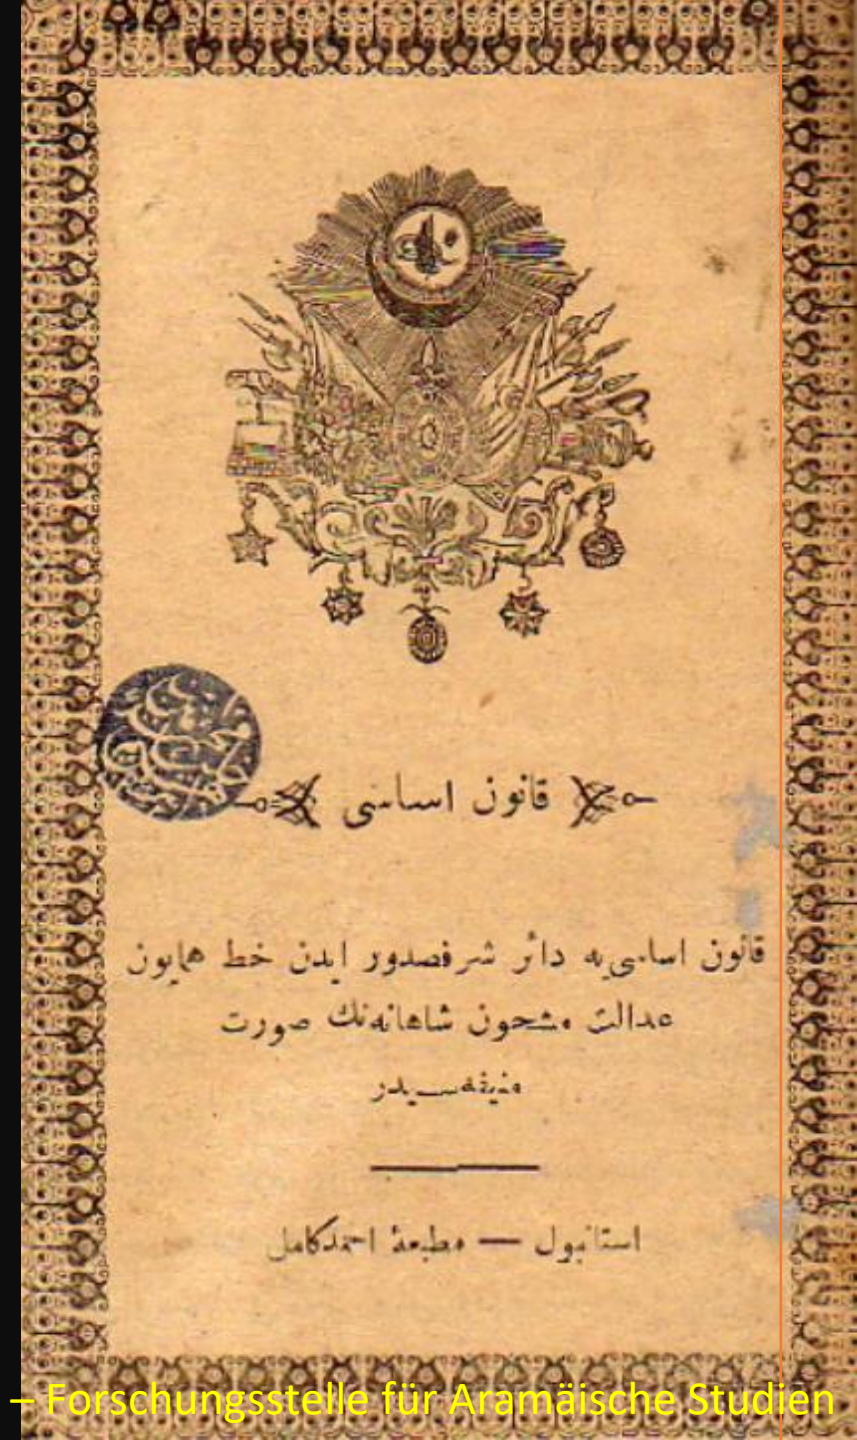 قانون اساسی
قانون اساسی‌یه دائر شرفصدور ایدن خط همایون
عدالت مشحون شاهانه‌نك صورت
منیفه‌سیدر
استانبول — مطبعهٔ احمد كامل
– Forschungsstelle für Aramäische Studien